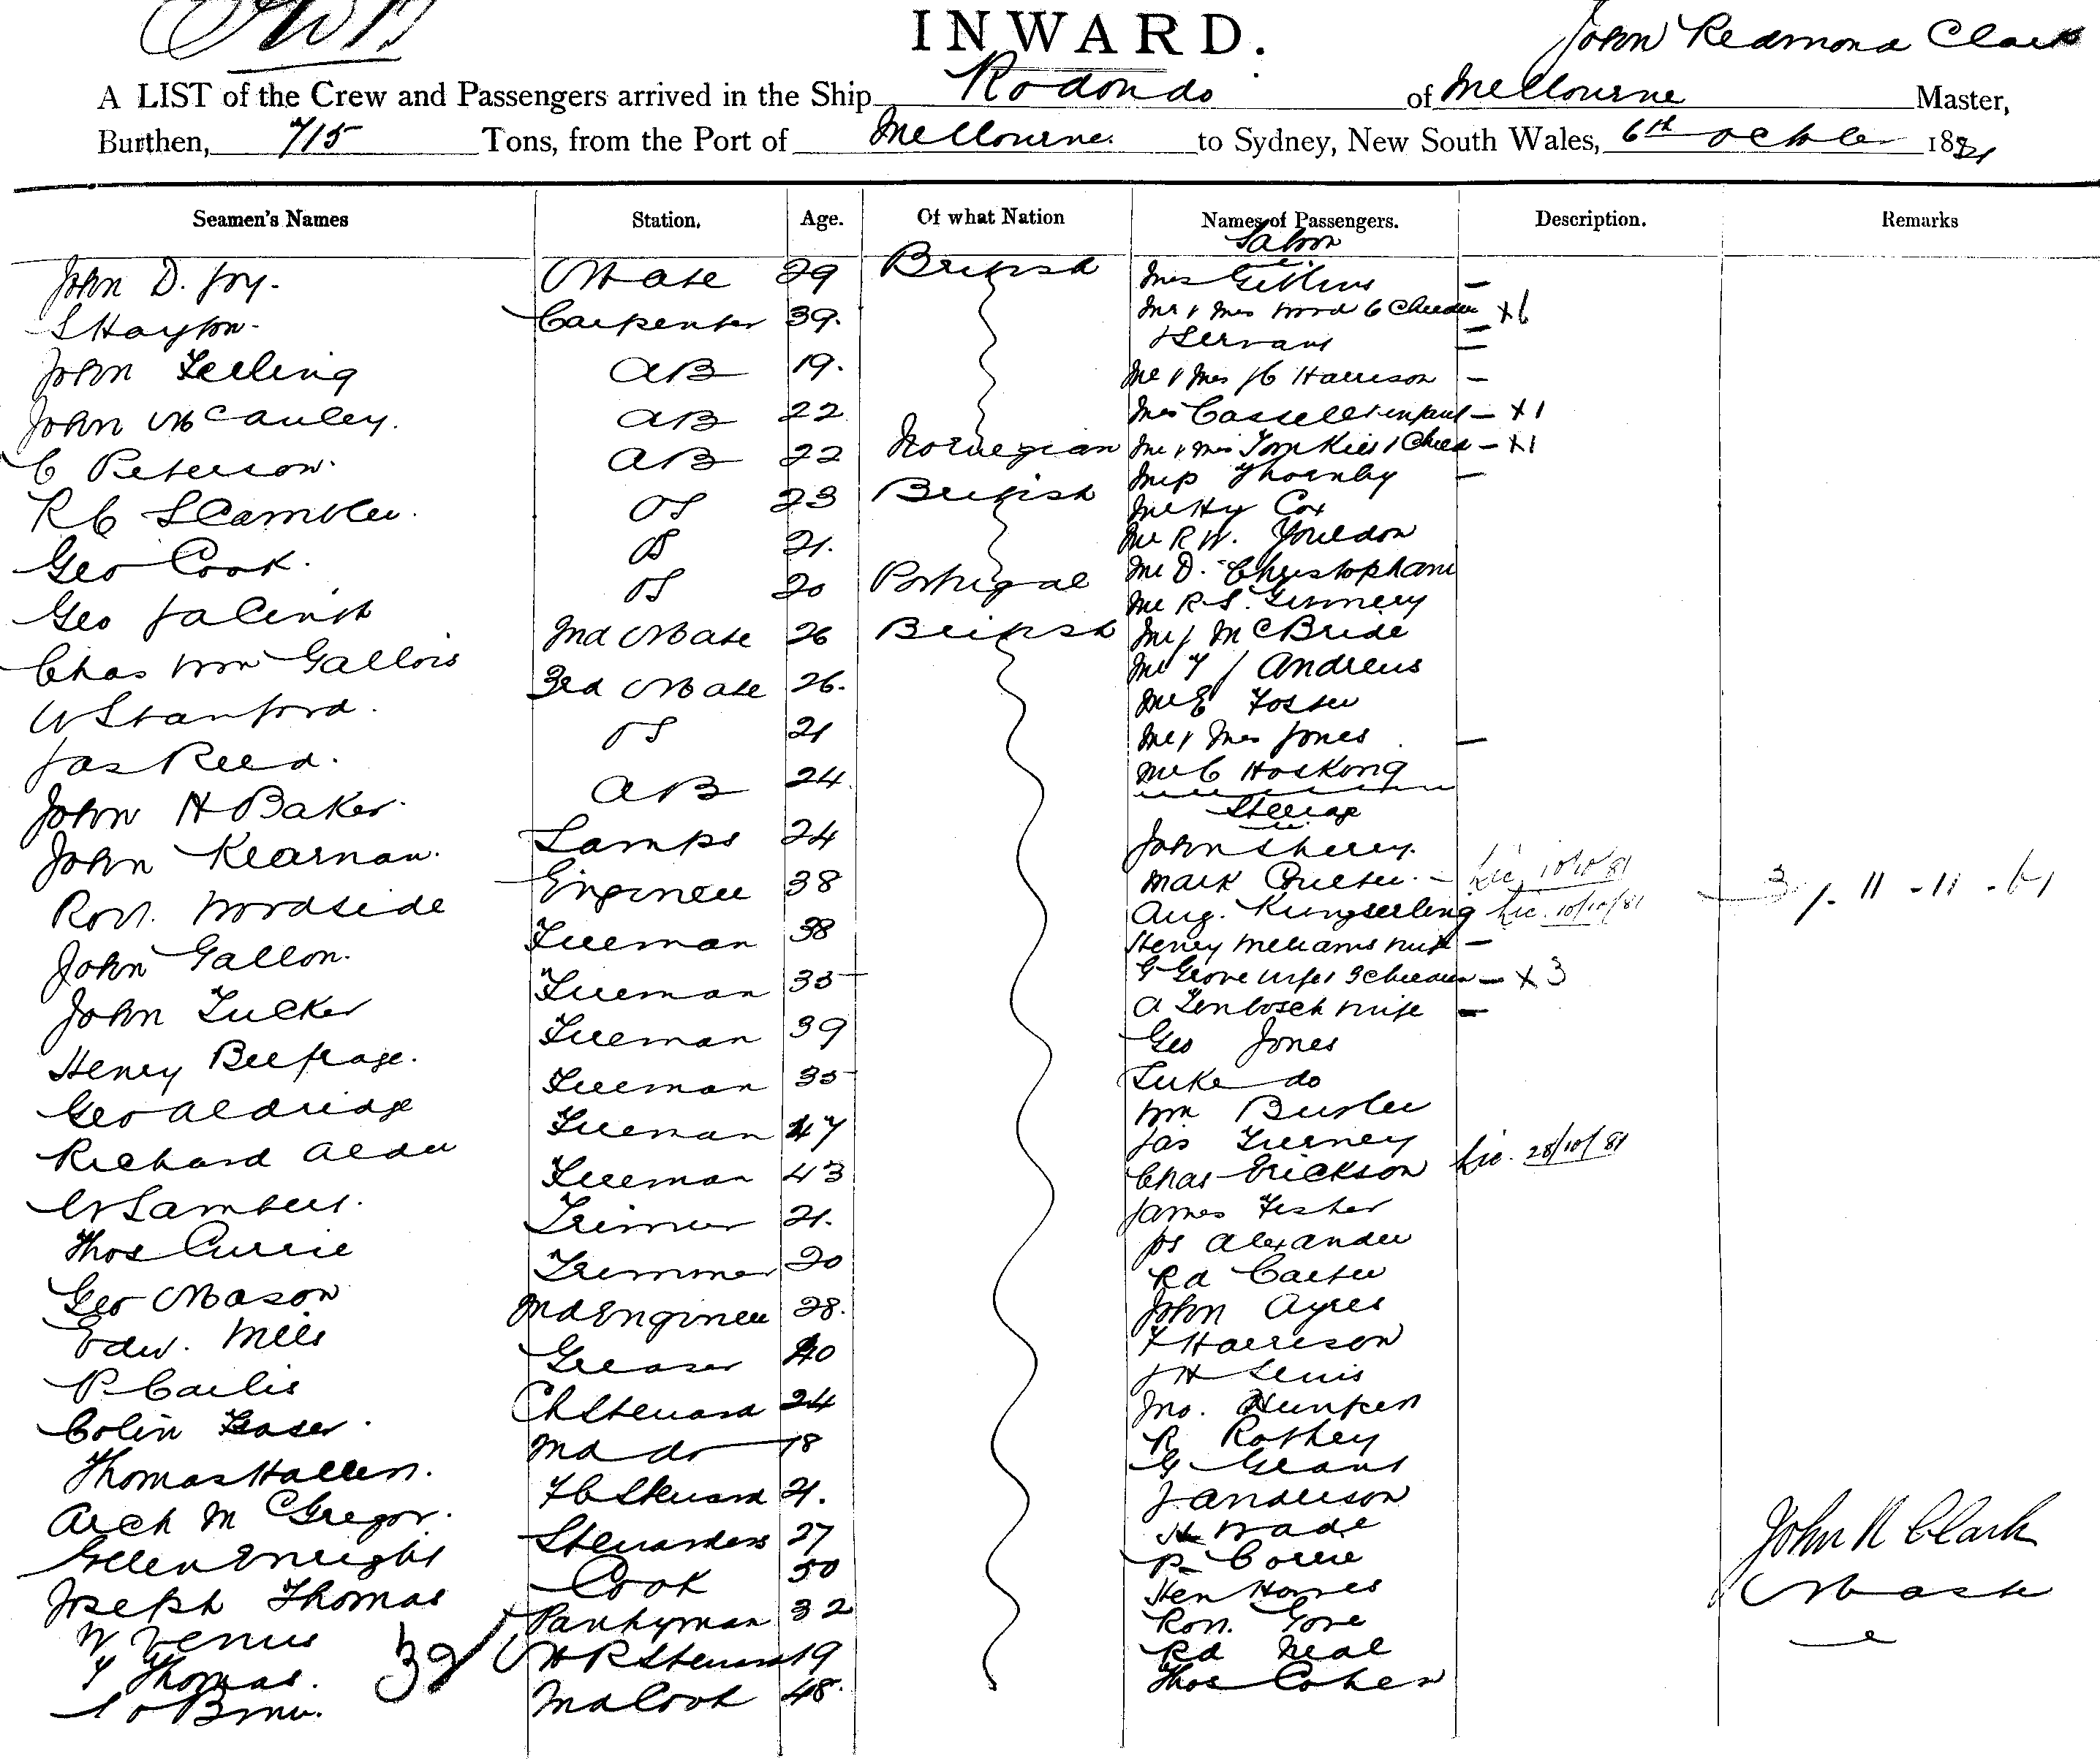 INWARD.
John Redmond Clark
A LIST of the Crew and Passengers arrived in the Ship Rodondo of Melbourne Master,
Burthen, 715 Tons, from the Port of Melbourne to Sydney, New South Wales, 6th October 1881
Seamen's Names Station. Age. Of what Nation Names of Passengers. Description. Remarks
Saloon
John D. Joy. Mate 29 British Mrs Gittins —
S Hayton. Carpenter 39. Mr & Mrs Wood 6 Children x6
& Servant —
John Leeling AB 19. Mr & Mrs J C Harrison —
John McCauley. AB 22 Mrs Cassell & infant — x1
C Peterson. AB 22 Norwegian Mr & Mrs Tomkies 1 Child — x1
Miss Thornby —
R C Scambler. OS 23 British Mr Hy Cox
Geo Cook. OS 21. Mr R W. Youldon
Mr D. Christopham
Geo Jacinth OS 20 Portugal Mr R S.
Chas Wm Gallois 2nd Mate 26 British Mr J McBride
Mr T J Andrews
W Stanford. 3rd Mate 26. Mr E Foster
Jas Reed. OS 21 Mr & Mrs Jones —
Mr C Hosking
John H Baker. AB 24. Steerage
John Kearnan. Lamps 24 John Sherry.
Robt. Woodside Engineer 38 Mark Coulter. — Lic. 10/10/81 3 /. 11 - 11 -
Aug. Kungserling Lic. 10/10/81
John Gallon. Fireman 38 Henry Williams wife —
John Tucker Fireman 35 G Grove wife & 3 children — x3
A Tenbosch wife —
Henry Belfrage. Fireman 39 Geo Jones
Geo Aldridge Fireman 35 Luke do
Wm Butler
Richard Alder Fireman 47 Jas Tierney
W Lambert. Fireman 43 Chas Erickson Lic. 28/10/81
Thos Currie Trimmer 21. James Fisher
Geo Mason Trimmer 20 Jos Alexander
Rd Carter
Edw. Mills 2nd Engineer 28. John Ayres
P. Carlis Greaser 40 F Harrison
J H Lewis
Colin Fraser. Ch Steward 24 Jno. Hunken
Thomas Hallen. 2nd do 18 R Rothey
G Grant
Arch McGregor. F C Steward 21. J Anderson
Ellen Enright Stewardess 27 H Wade
P Corrie
Joseph Thomas Cook 50 Hen Homes
W Venus Pantryman 32 Robt. Gore
T Thomas. M R Steward 19 Rd Neal
Brown. 2nd Cook 48. Thos Cohen
32
John R Clark
Master